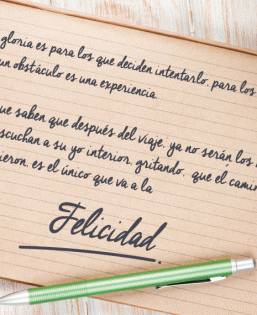 gloria es para los que deciden intentarlo, para los
un obstáculo es una experiencia.
ue saben que después del viaje, ya no serán los
scuchan a su yo interior, gritando, que el camin
ieron, es el único que va a la
Felicidad.